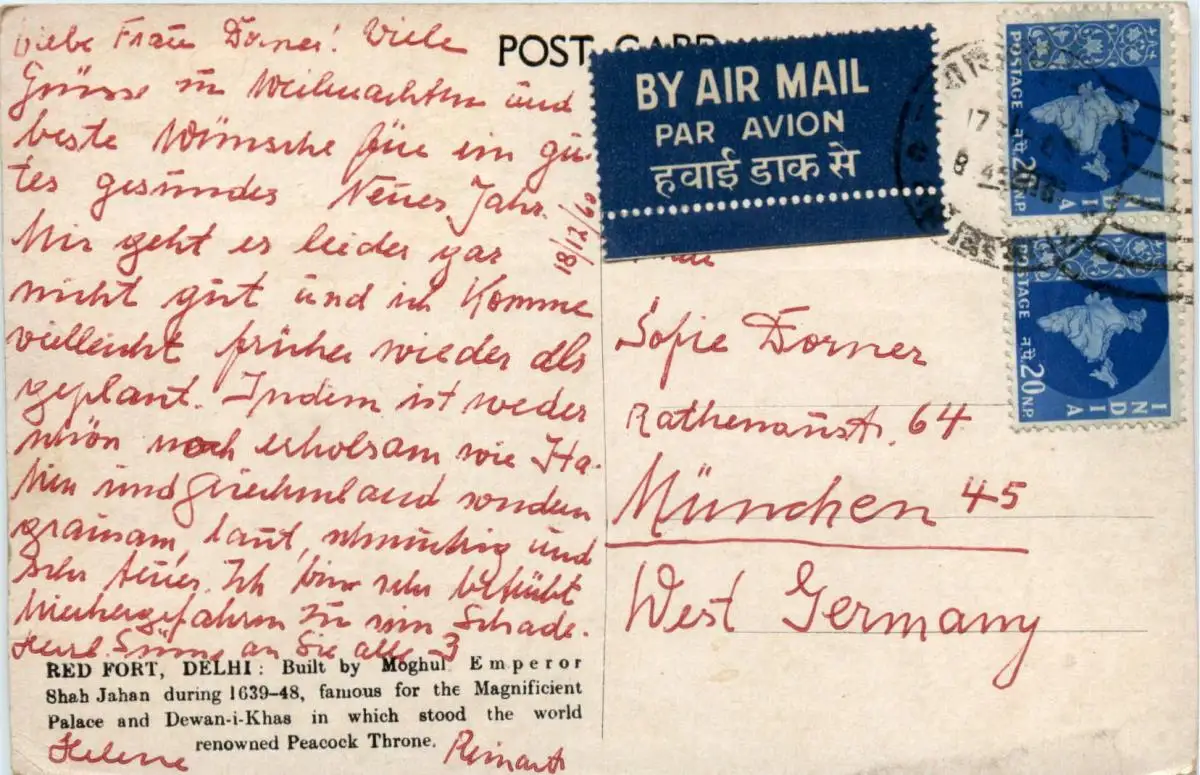 Liebe Frau Dorner! Viele
Grüsse zu Weihnachten und
beste Wünsche für ein gu-
tes gesundes Neues Jahr.
Mir geht es leider gar
nicht gut und ich komme
vielleicht früher wieder als
geplant. Indien ist weder
schön noch erholsam wie Ita-
lien und Griechenland sondern
grausam, laut, schmutzig und
sehr teuer. Ich bin sehr betrübt
hierhergefahren zu sein Schade.
Herzl. Grüsse an Sie alle 3
Helene
18/12/60
RED FORT, DELHI: Built by Moghul Emperor
Shah Jahan during 1639-48, famous for the Magnificient
Palace and Dewan-i-Khas in which stood the world
renowned Peacock Throne.
POST CARD
BY AIR MAIL
PAR AVION
हवाई डाक से
Sofie Dorner
Rathenaustr. 64
München 45
West Germany
POSTAGE न.पै. 20 N.P.
INDIA
POSTAGE न.पै. 20 N.P.
INDIA